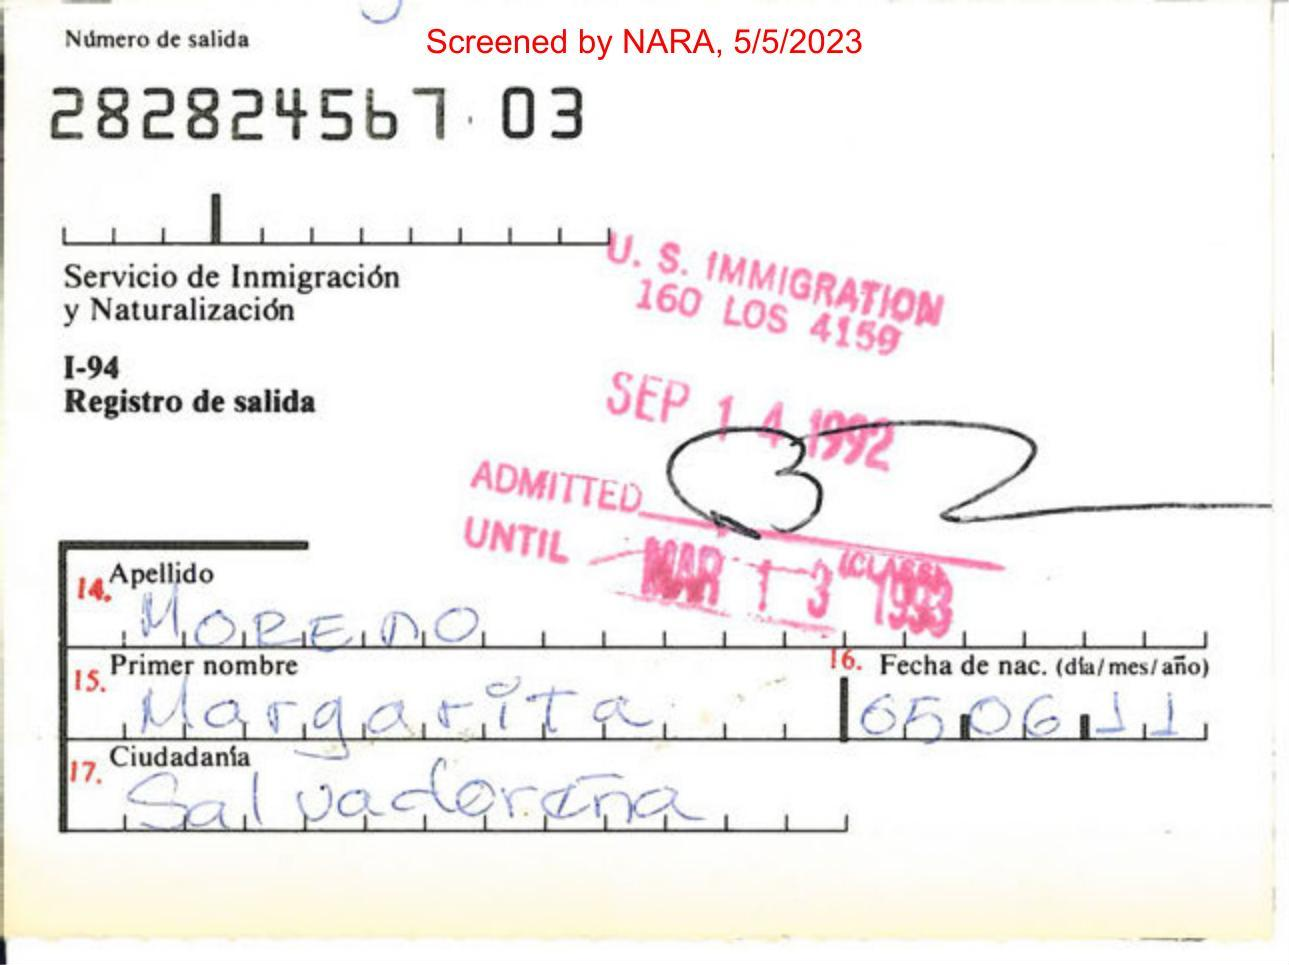 Número de salida
Screened by NARA, 5/5/2023
282824567 03
Servicio de Inmigración
y Naturalización
I-94
Registro de salida
U. S. IMMIGRATION
160 LOS 4159
SEP 14 1992
ADMITTED
(CLASS)
UNTIL MAR 13 1993
14. Apellido
MORENO
15. Primer nombre
Margarita
16. Fecha de nac. (día/mes/año)
05 06 11
17. Ciudadanía
Salvadoreña